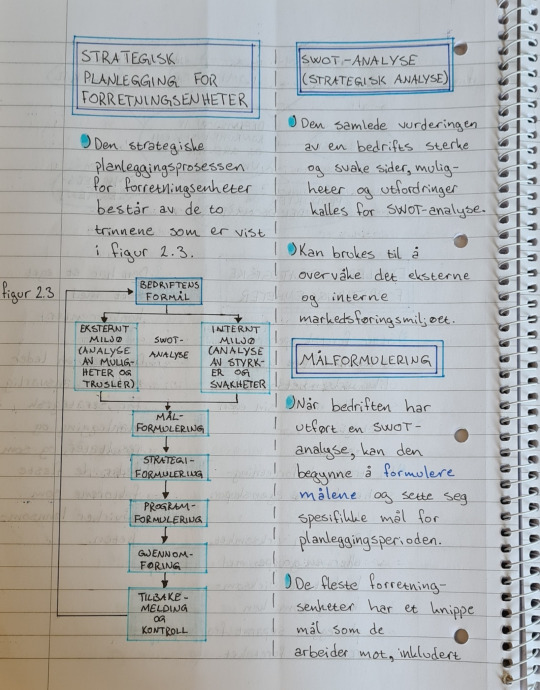 STRATEGISK
PLANLEGGING FOR
FORRETNINGSENHETER
Den strategiske
planleggingsprosessen
for forretningsenheter
består av de to
trinnene som er vist
i figur 2.3.
figur 2.3
BEDRIFTENS
FORMÅL
EKSTERNT
MILJØ
(ANALYSE
AV MULIG-
HETER OG
TRUSLER)
SWOT-
ANALYSE
INTERNT
MILJØ
(ANALYSE
AV STYRK-
ER OG
SVAKHETER
MÅL-
FORMULERING
STRATEGI-
FORMULERING
PROGRAM-
FORMULERING
GJENNOM-
FØRING
TILBAKE-
MELDING
OG
KONTROLL
SWOT-ANALYSE
(STRATEGISK ANALYSE)
Den samlede vurderingen
av en bedrifts sterke
og svake sider, mulig-
heter og utfordringer
kalles for SWOT-analyse.
Kan brukes til å
overvåke det eksterne
og interne
markedsføringsmiljøet.
MÅLFORMULERING
Når bedriften har
utført en SWOT-
analyse, kan den
begynne å formulere
målene og sette seg
spesifikke mål for
planleggingsperioden.
De fleste forretning-
senheter har et knippe
mål som de
arbeider mot, inkludert